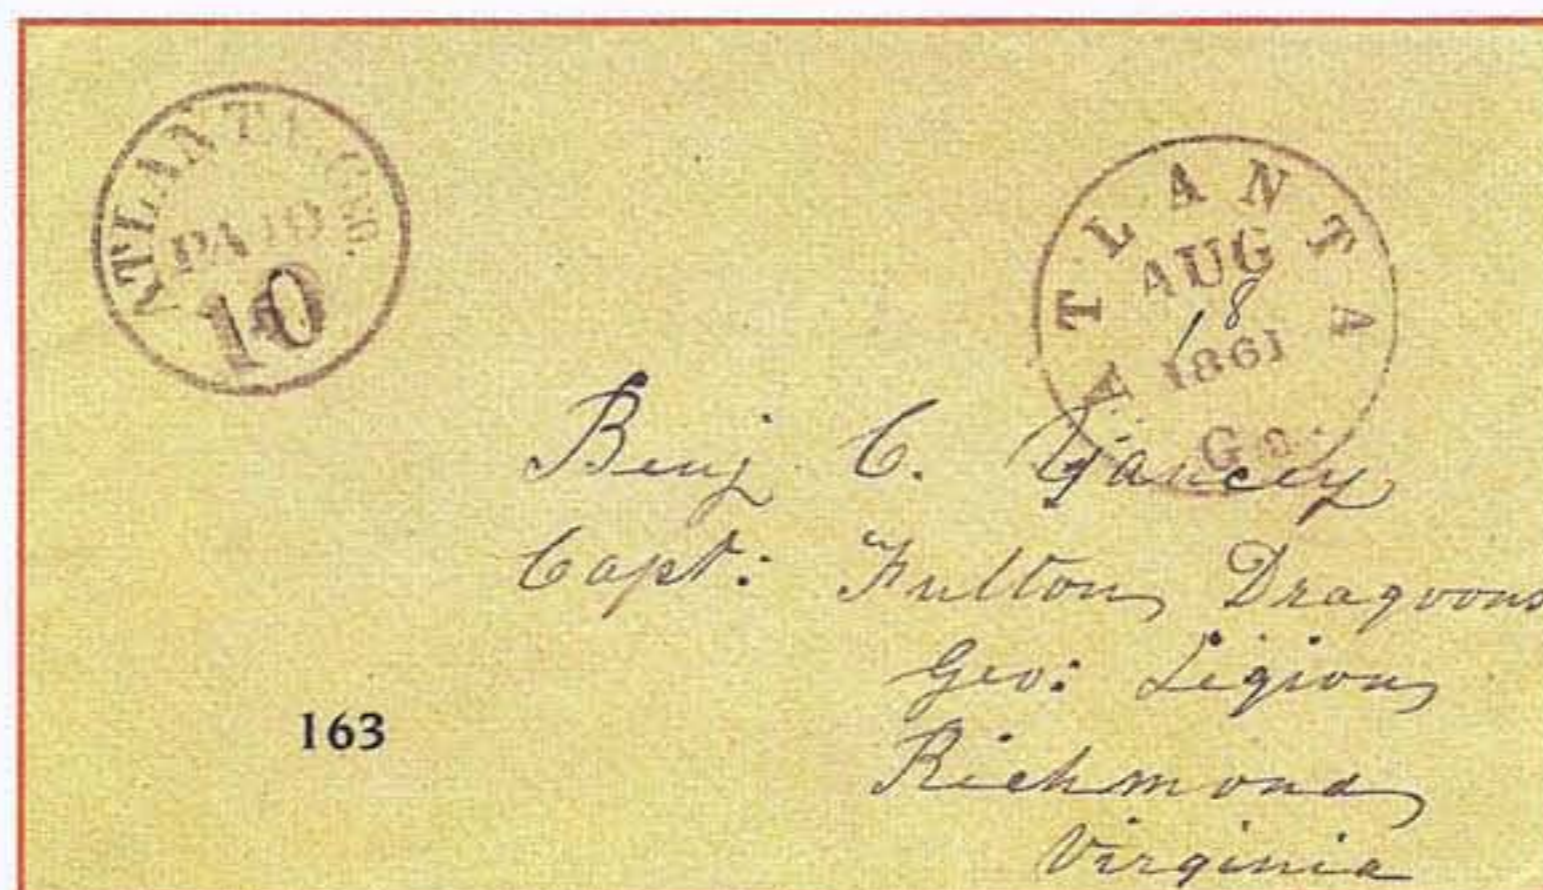 ATLANTA, GEO.
PAID
10
ATLANTA
AUG
18
1861
Ga.
Benj. C. Yancey
Capt: Fulton Dragoons
Geo: Legion
Richmond
Virginia
163